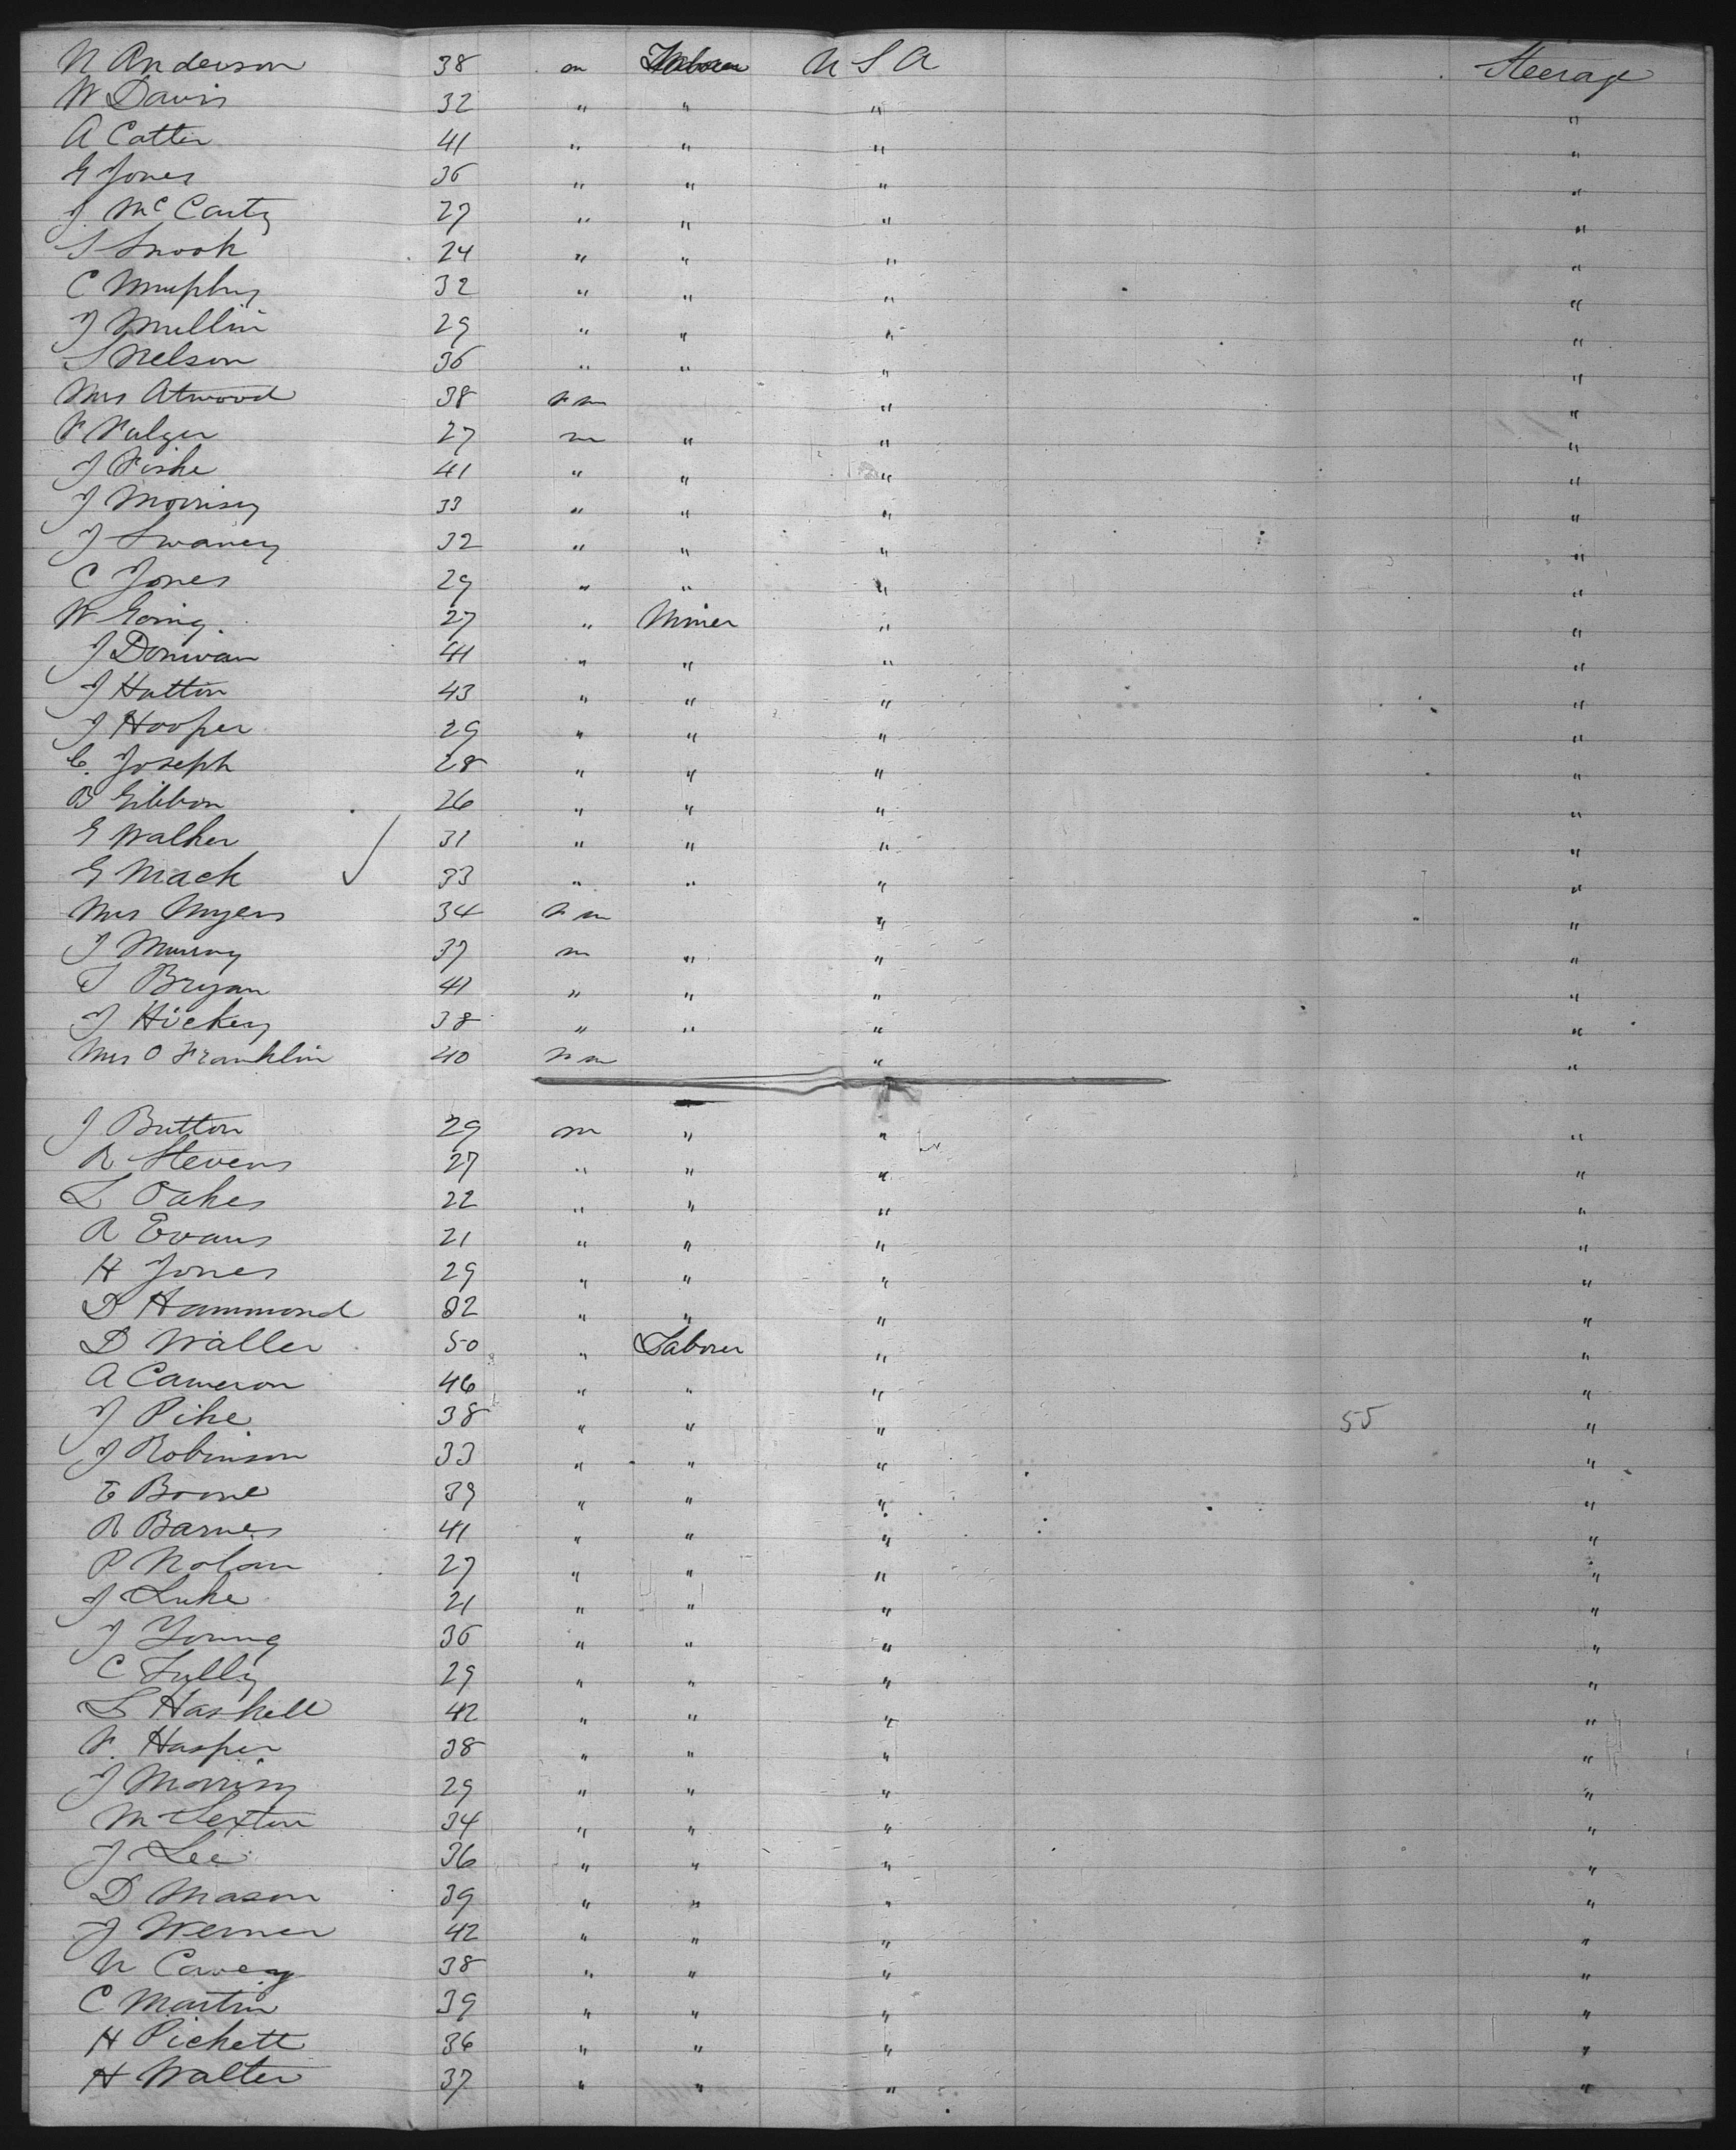 N Anderson 38 m Laborer U S A Steerage
W Davis 32 " " " "
A Cotter 41 " " " "
G Jones 36 " " " "
J. McCarty 27 " " " "
S Snook 24 " " " "
C Murphy 32 " " " "
J Mullin 29 " " " "
S Nelson 36 " " " "
Mrs Atwood 38 F m " "
F Fulger 27 m " " "
J Fiske 41 " " " "
J Morrisy 33 " " " "
J Swaney 32 " " " "
C Jones 29 " " " "
W Going 27 " Miner " "
J Donivan 41 " " " "
J Hutton 43 " " " "
J Hooper 29 " " " "
C. Joseph 28 " " " "
B Gibbon 26 " " " "
G Walker 31 " " " "
G Mack 33 " " " "
Mrs Myers 34 F m " "
J Murray 37 m " " "
S Bryan 41 " " " "
J Hickey 38 " " " "
Mrs O Franklin 40 F m " "
J Button 29 m " " "
R Stevens 27 " " " "
L Oakes 22 " " " "
R Evans 21 " " " "
H Jones 29 " " " "
D Hammond 32 " " " "
D Waller 50 " Laborer " "
A Cameron 46 " " " "
J Pike 38 " " " 55 "
J Robinson 33 " " " "
E Boone 39 " " " "
R Barnes 41 " " " "
P Nolan 27 " " " "
J Luke 21 " " " "
J Young 36 " " " "
C Tully 29 " " " "
L Haskell 42 " " " "
F. Hasper 38 " " " "
J Morrisy 29 " " " "
M Sexton 34 " " " "
J Lee 36 " " " "
D Mason 39 " " " "
J Werner 42 " " " "
N 38 " " " "
C Martin 39 " " " "
H Pickett 36 " " " "
H Walter 37 " " " "